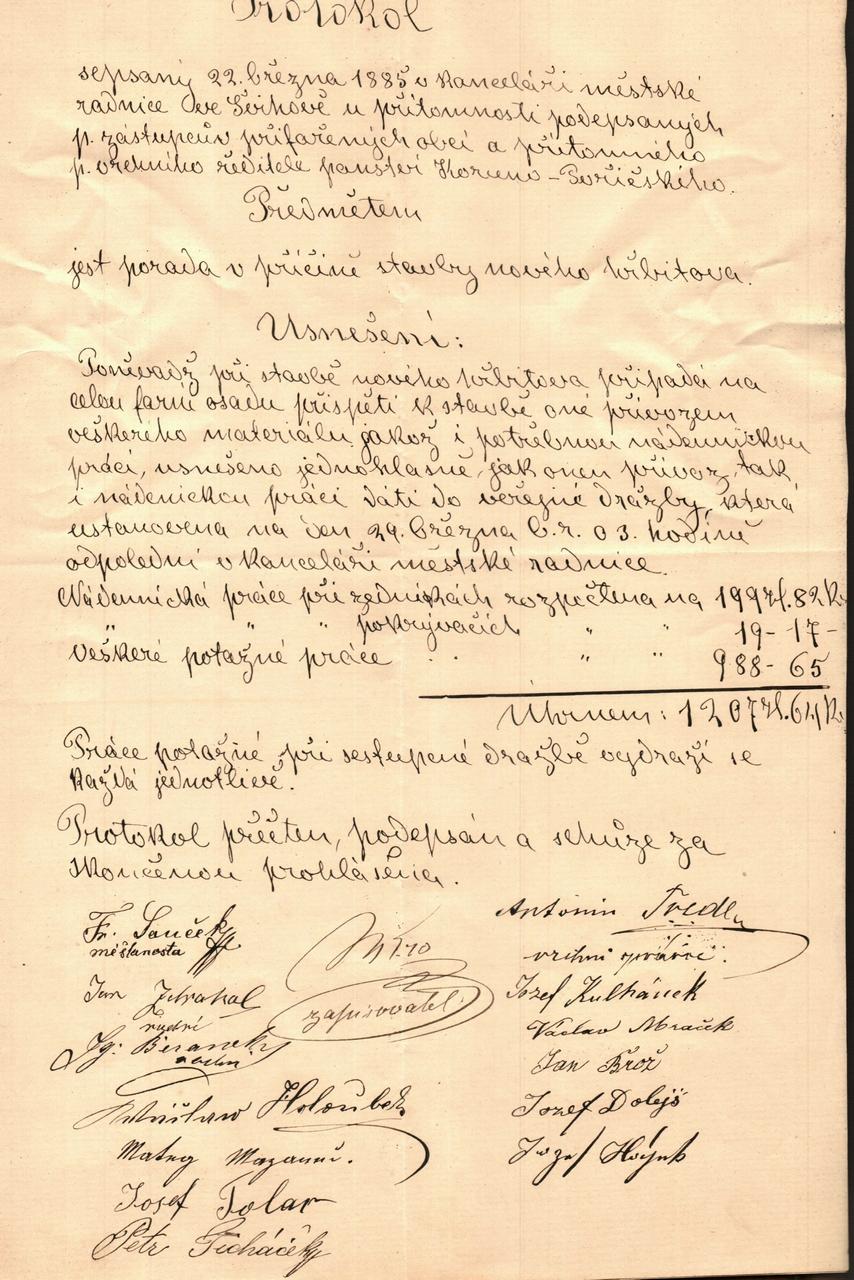 Protokol
sepsaný 22. března 1885 v kanceláři městské
radnice ve Švihově u přítomnosti podepsaných
p. zástupcův přifařených obcí a přítomného
p. vrchního ředitele panství Koruno-Poříčského.
Předmětem
jest porada v příčině stavby nového hřbitova.
Usnešení:
Poněvadž při stavbě nového hřbitova připadá na
celou farní osadu přispěti k stavbě oné přívozem
veškerého materiálu jakož i potřebnou nádennickou
prácí, usnešeno jednohlasně, jak onen přívoz, tak
i nádenickou práci dáti do veřejné dražby, která
ustanovena na den 29. března b. r. o 3. hodině
odpolední v kanceláři městské radnice.
Nádennická práce při zednických rozpočtena na 199 zl. 82 k
" " " pokrývačích " " 19 - 17 -
veškeré potažné práce . . " " 988 - 65
Úhrnem: 1207 zl. 64 k
Práce potažné při sestupené dražbě vydraží se
každá jednotlivě.
Protokol přečten, podepsán a schůze za
skončenou prohlášena.
Fr. Souček
měšťanosta
zapisovatel
Antonin
vrchni
Jan
radní
Ig. Beranek
radní
Jozef Kulhánek
Václav Mraček
Jan Brož
Holoubek
Jozef Dolejš
Matej
Jozef
Josef Tolar
Petr